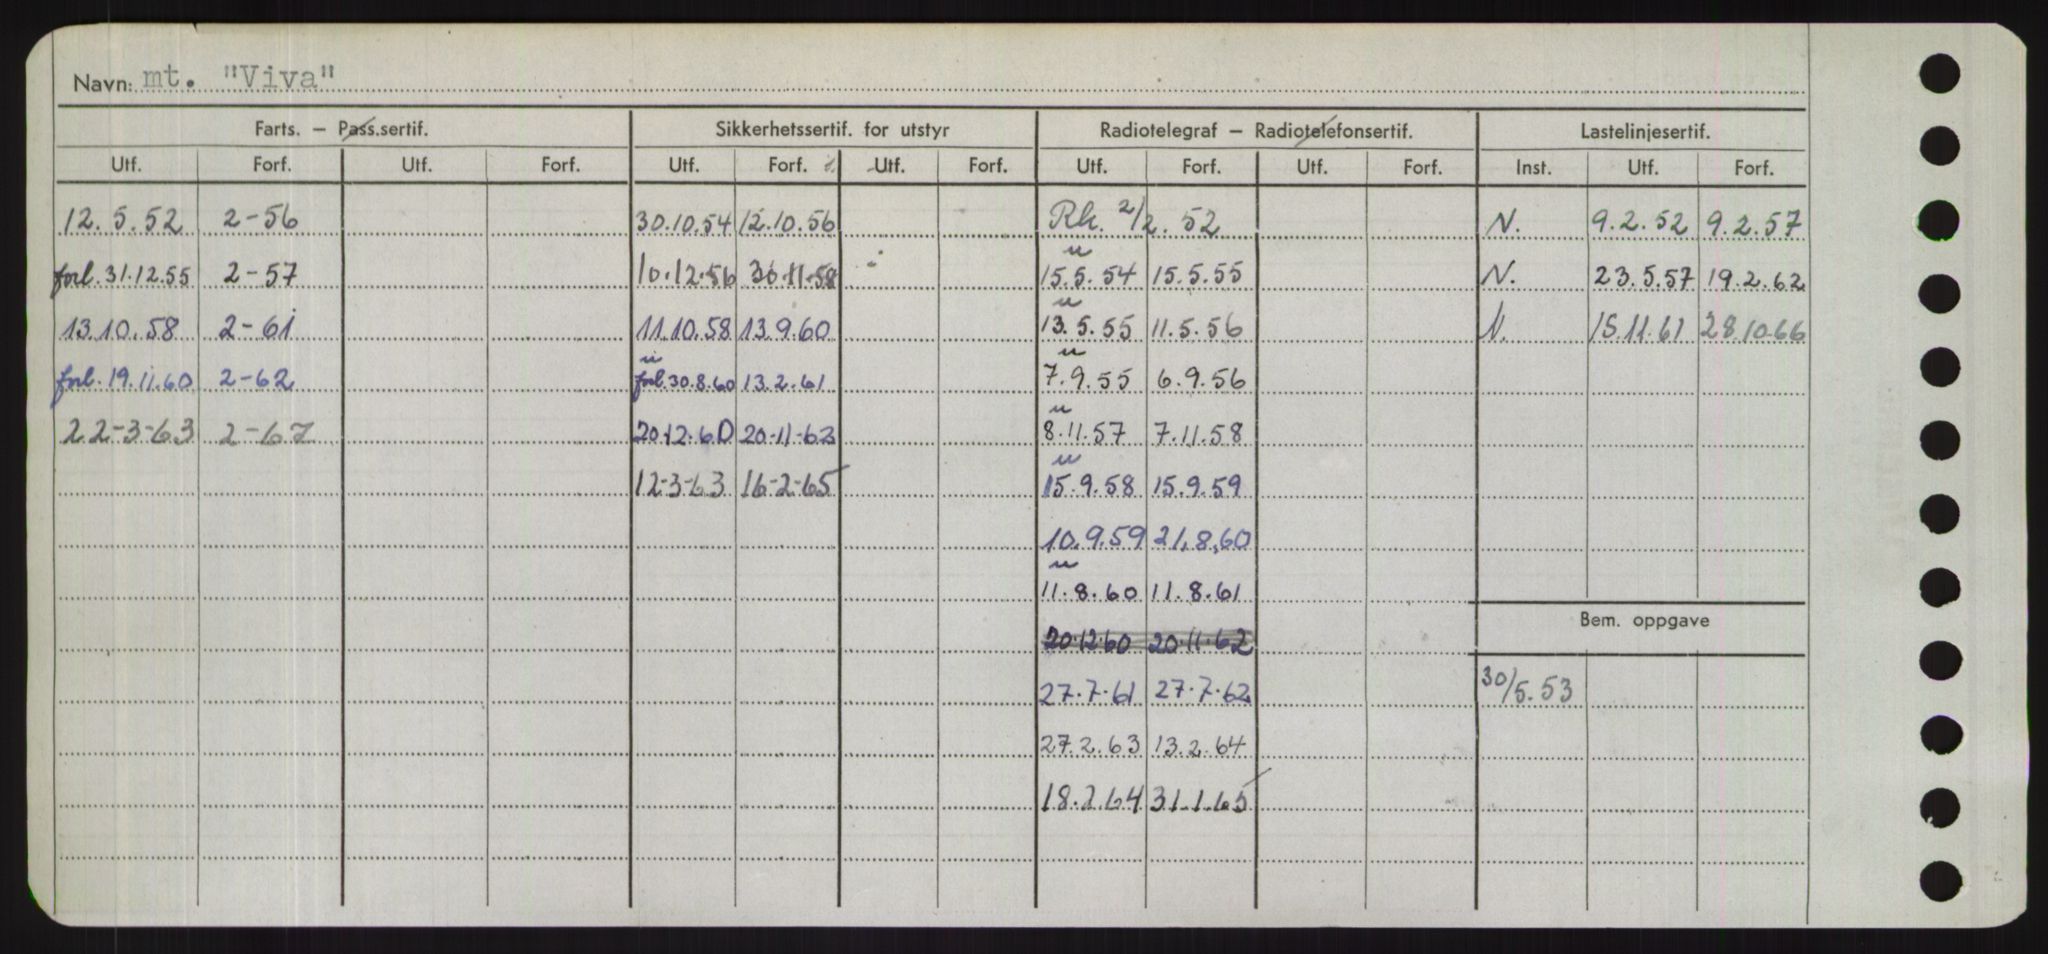 Navn: mt. "Viva"
Farts. – Pass.sertif. Sikkerhetssertif. for utstyr Radiotelegraf – Radiotelefonsertif. Lastelinjesertif.
Utf. Forf. Utf. Forf. Utf. Forf. Utf. Forf. Utf. Forf. Utf. Forf. Inst. Utf. Forf.
12.5.52 2-56 30.10.54 12.10.56 Rh. 2/2.52 N. 9.2.52 9.2.57
forl. 31.12.55 2-57 10.12.56 30.11.58 u 15.5.54 15.5.55 N. 23.5.57 19.2.62
13.10.58 2-61 11.10.58 13.9.60 u 13.5.55 11.5.56 N. 15.11.61 28.10.66
forl. 19.11.60 2-62 u forl. 30.8.60 13.2.61 u 7.9.55 6.9.56
22-3-63 2-67 20.12.60 20-11-62 u 8.11.57 7.11.58
12-3-63 16-2-65 u 15.9.58 15.9.59
10.9.59 21.8.60
u 11.8.60 11.8.61
20.12.60 20.11.62
Bem. oppgave
27.7.61 27.7.62 30/5.53
27.2.63 13.2.64
18.2.64 31.1.65